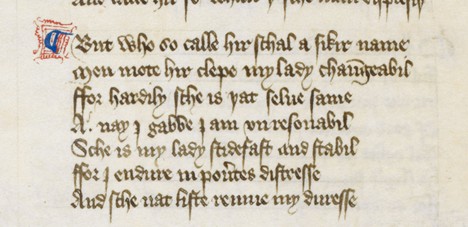 But who so calle hir schal a sikir name
Men mote hir clepe my lady chaungeabil
ffor hardily sche is yat selue same
A. nay j gabbe j am vnresonabil
Sche is my lady stidefast and stabil
ffor j endure in pouertes distresse
And sche nat liste remue my duresse